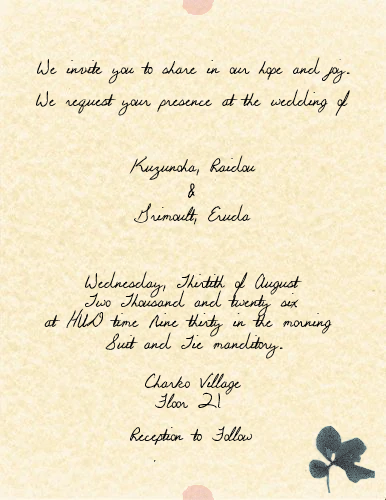 We invite you to share in our hope and joy.
We request your presence at the wedding of
Kuzunoha, Raidou
&
Grimoult, Eruda
Wednesday, Thirtith of August
Two Thousand and twenty six
at HUD time Nine thirty in the morning
Suit and Tie manditory.
Charko Village
Floor 21
Reception to Follow